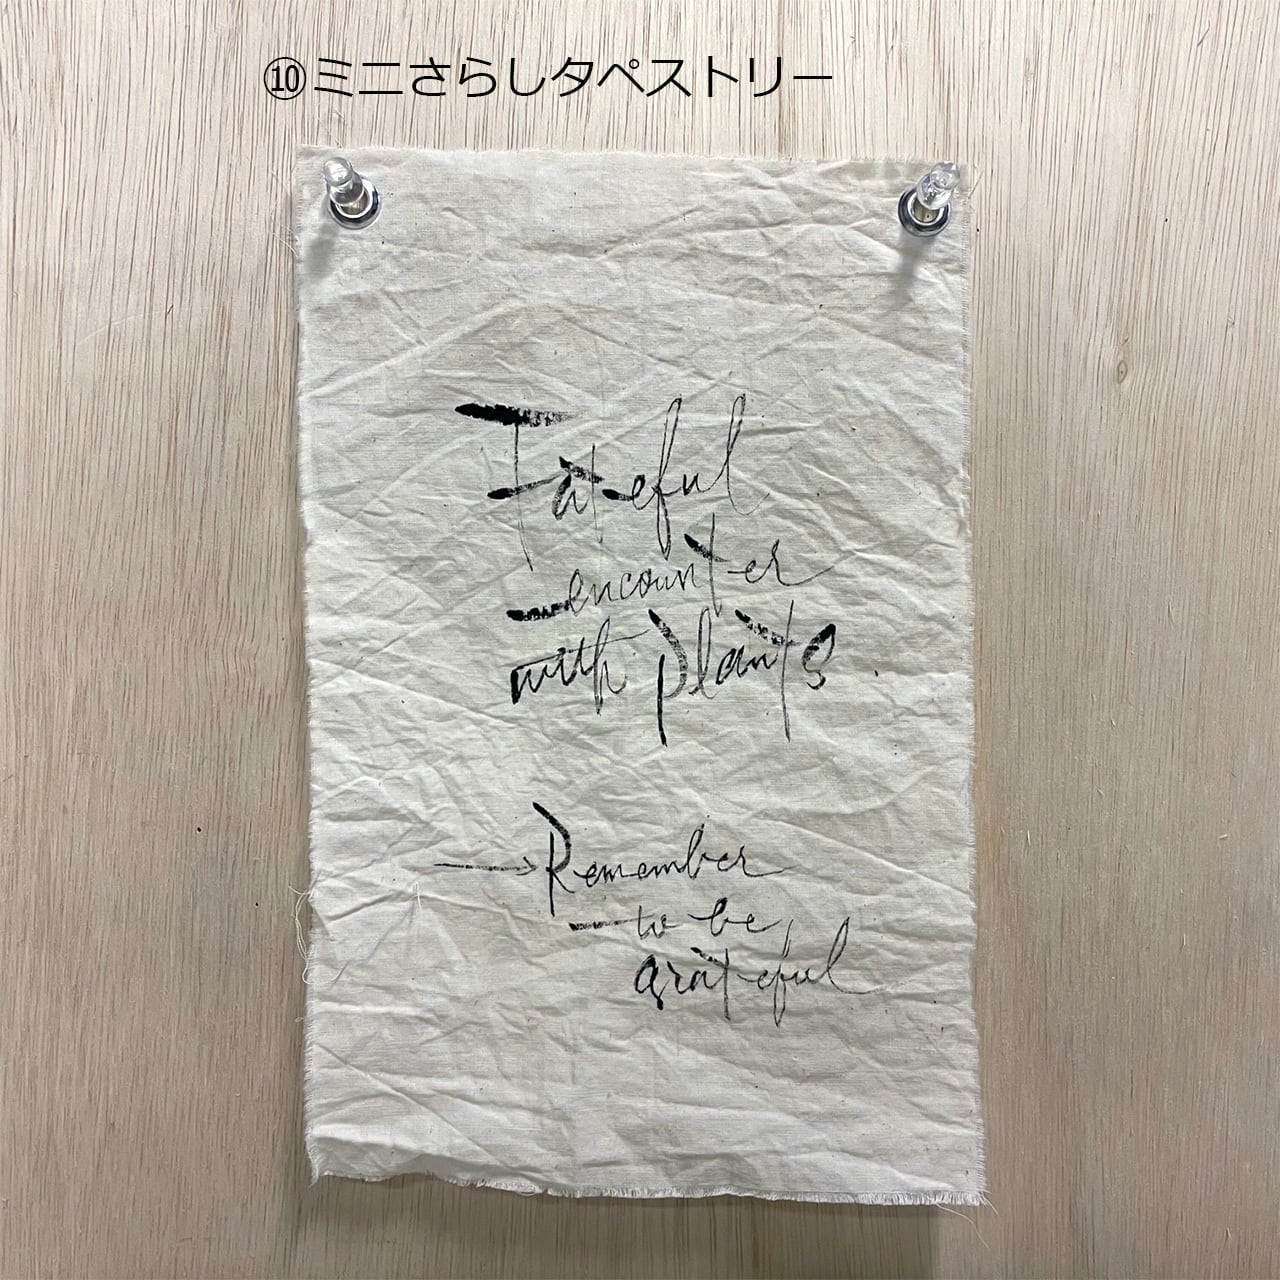 ⑩ミニさらしタペストリー
Fateful
encounter
with plants
→Remember
to be
grateful